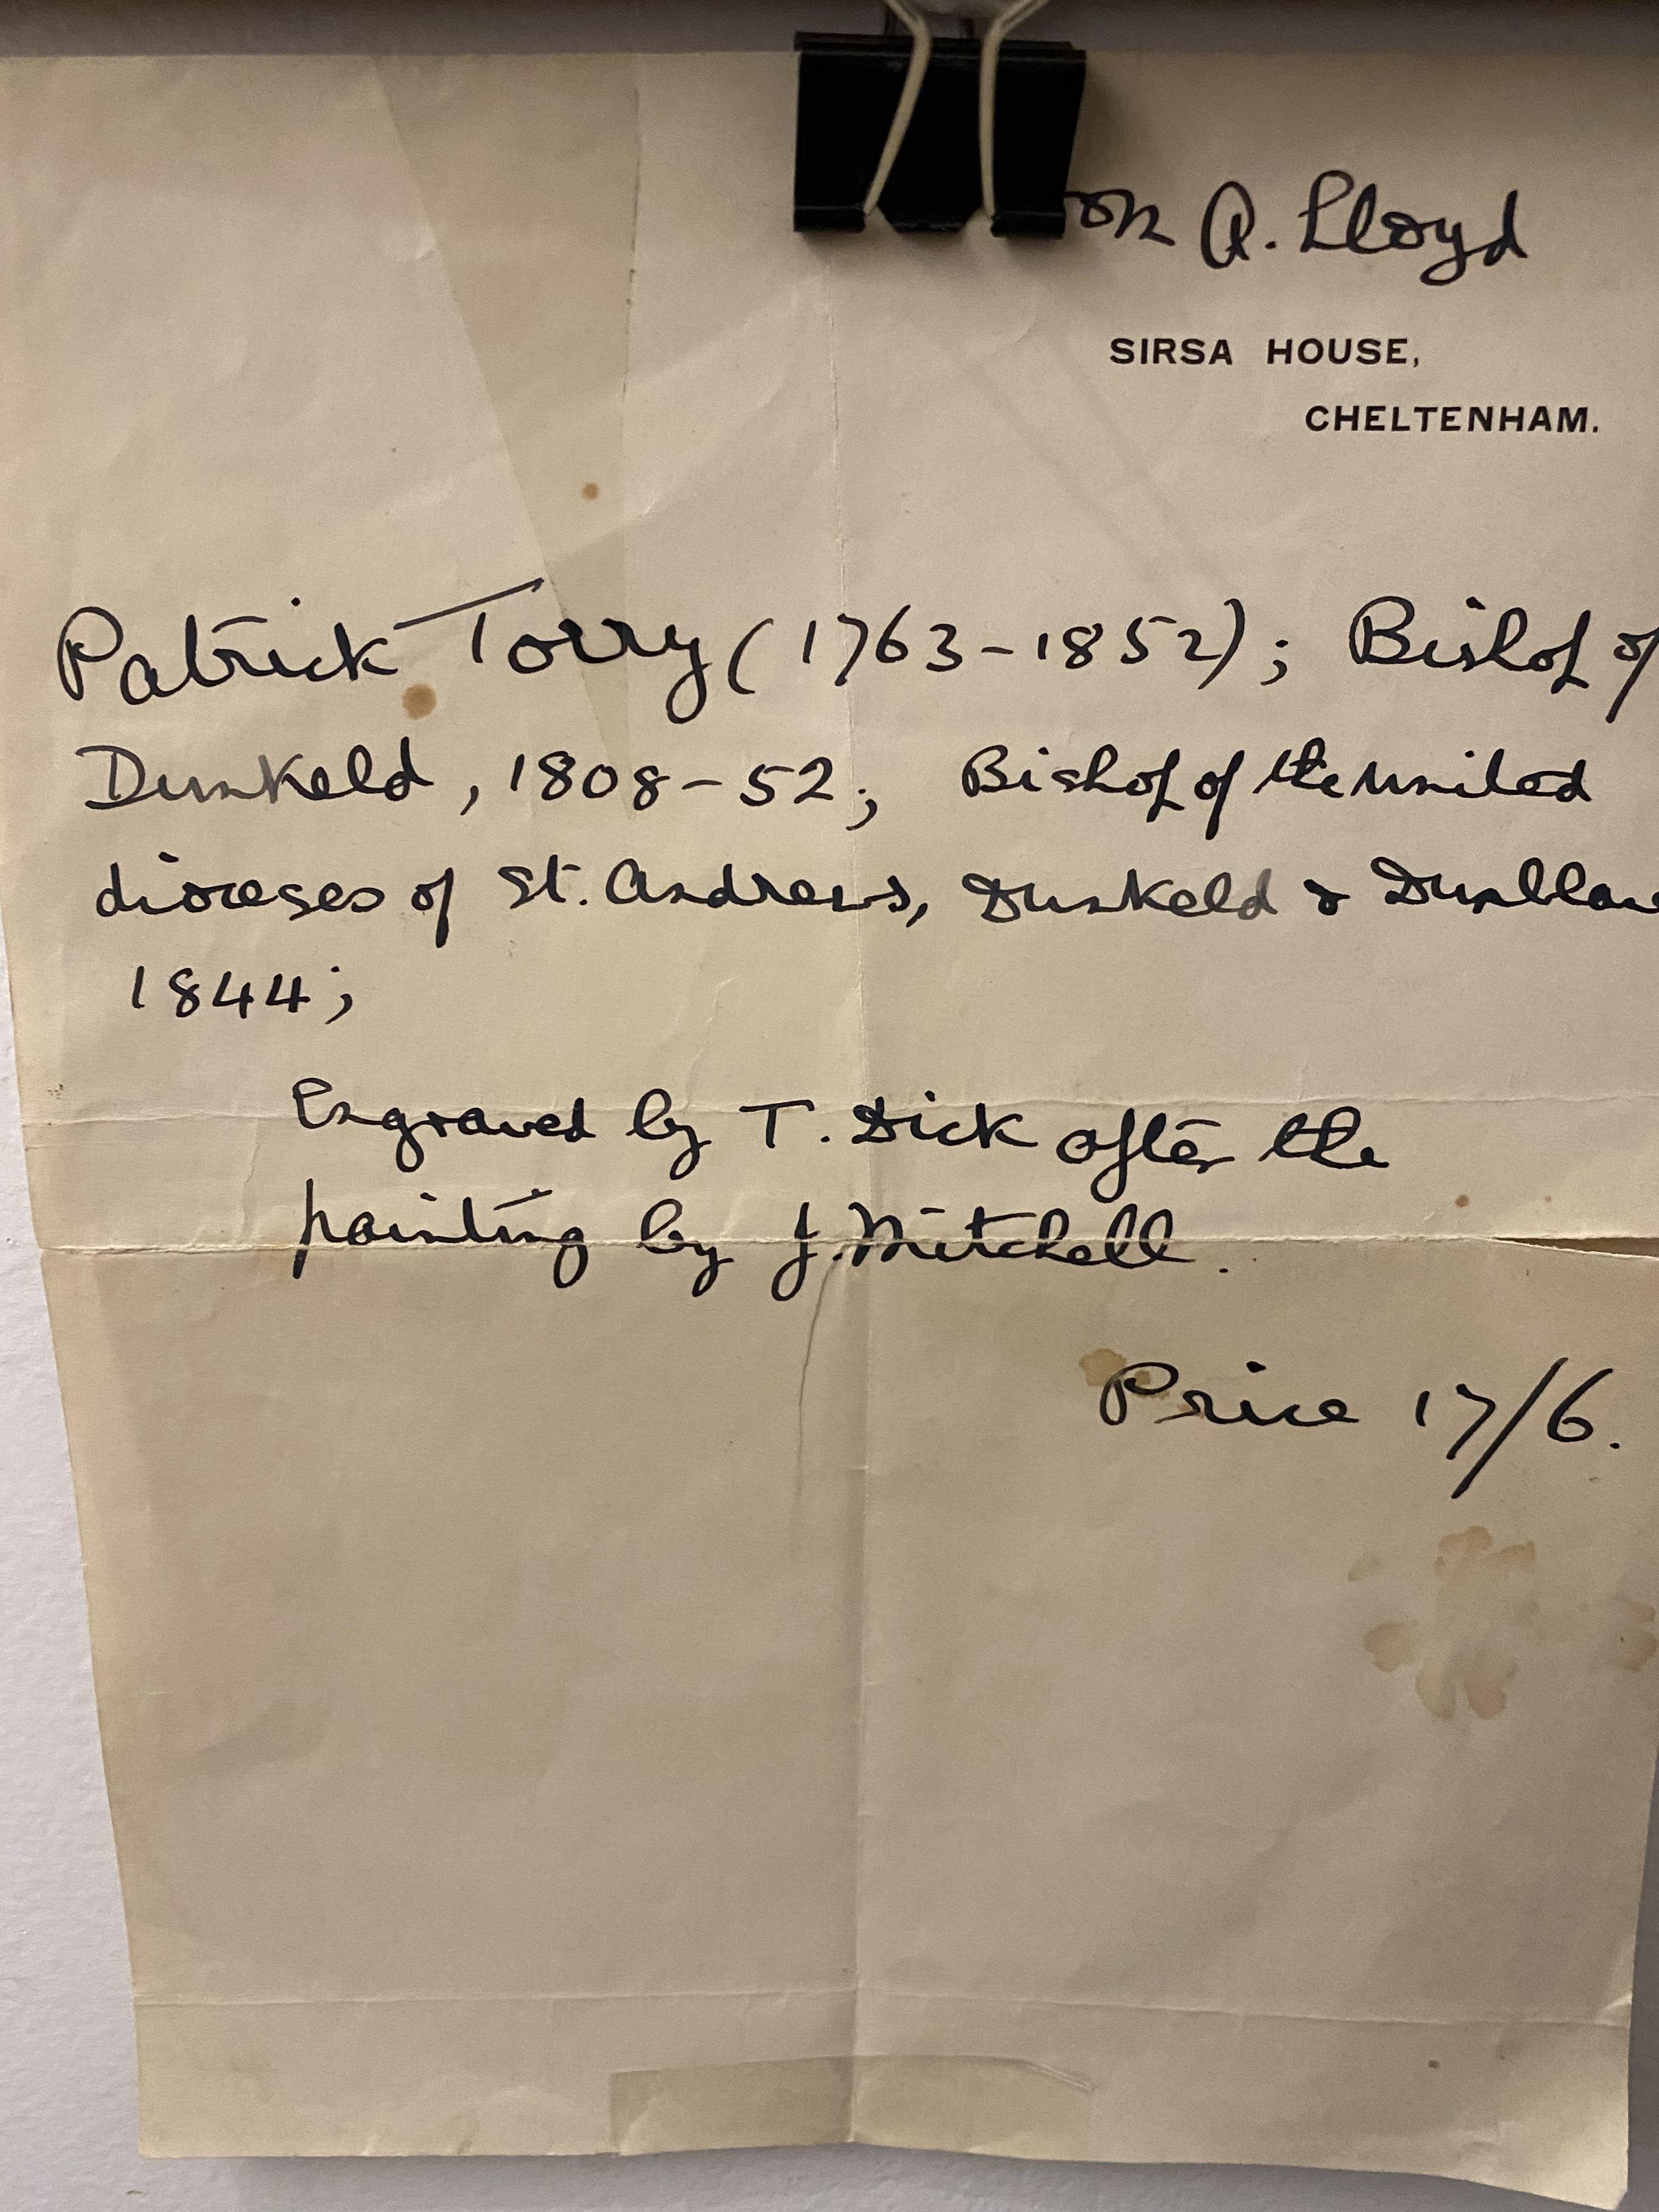 A. Lloyd
SIRSA HOUSE,
CHELTENHAM.
Patrick Torry (1763-1852); Bishop of
Dunkeld, 1808-52; Bishop of the united
dioceses of St. Andrews, Dunkeld & Dunblane
1844;
Engraved by T. Dick after the
painting by J. Mitchell.
Price 17/6.